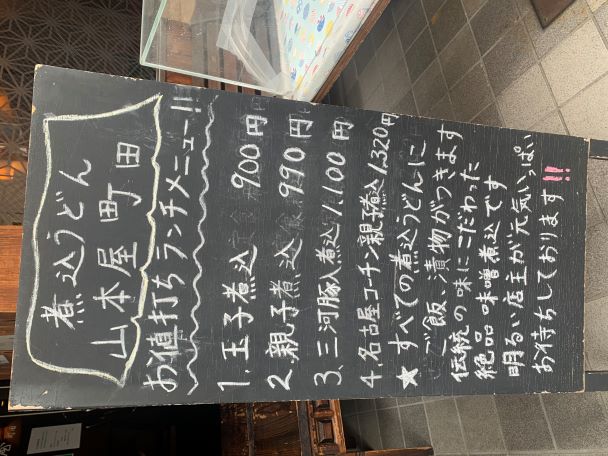 煮込うどん
山本屋 町田
お値打ちランチメニュー!!
1. 玉子煮込 900円
2. 親子煮込 990円
3. 三河豚入煮込 1,100円
4. 名古屋コーチン親子煮込 1,320円
★すべての煮込うどんに
ご飯・漬物がつきます
伝統の味にこだわった
絶品 味噌煮込です
明るい店主が元気いっぱい
お待ちしております!!